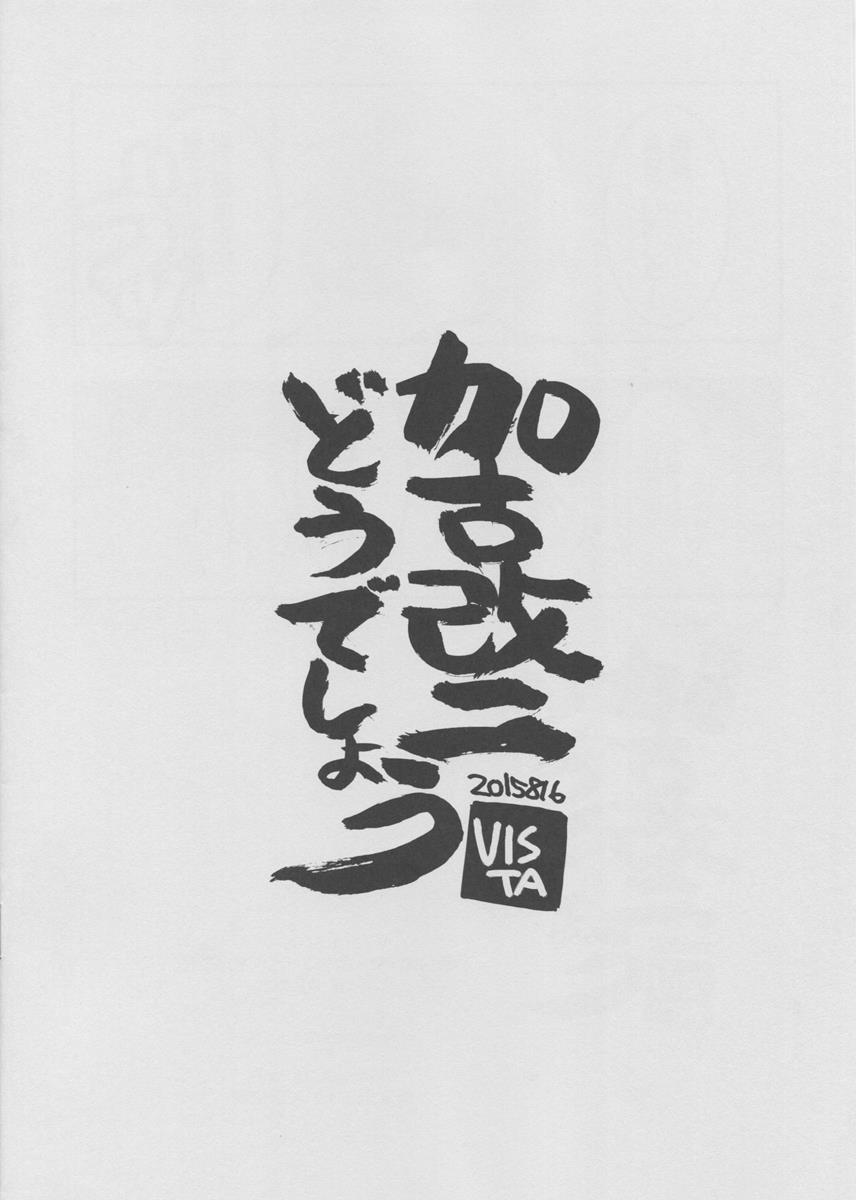 加古改二
どうでしょう
2015816
VIS
TA